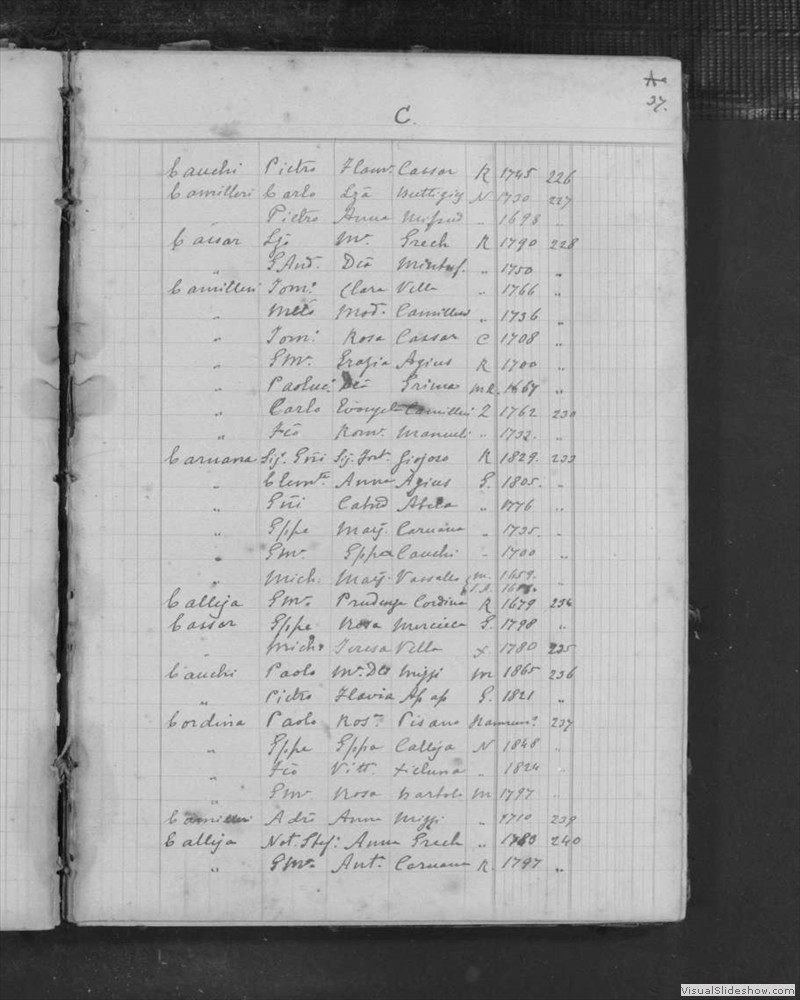 A
37.
C.
Cauchi Pietro Flamª Cassar R 1745 226
Camilleri Carlo Lza Buttigieg N 1730 227
Pietro Anna Mifsud „ 1698 „
Cassar Lzo Mª Grech R 1790 228
„ GAnd. Dca Mintuf. „ 1750 „
Camilleri Tomº Clara Vella „ 1766 „
„ Mod. Camilleri „ 1736 „
„ Tomº Rosa Cassar C 1708 „
„ GMª Grazia Agius R 1700 „
„ Dca Grima MR. 1667 „
„ Carlo Evangelª Camilleri Z 1762 230
„ Fco Romª „ 1732. „
Caruana Sij. Gñi Sij. Fort. Giojoso R 1829. 233
„ Clemte Anna Agius G. 1805. „
„ Gñi Abela „ 1776 „
„ Gppe Marj. Caruana „ 1735. „
„ GMª Gppa Cauchi „ 1700 „
„ Mich. Marj. Vassallo M. 1659.
Calleja GMª Prudenza Cordina R 1679 234
Cassar Gppe Rosa Mercieca G. 1798 „
„ Miche Teresa Vella X 1780 235
Cauchi Paolo Mª Dca Mizzi M 1865 236
„ Pietro Flavia Ap ap G. 1821 „
Cordina Paolo Rosª Pisano 237
„ Gppe Gppa Calleja N 1848 „
„ Fco Vittª Xicluna „ 1824 „
„ GMª Rosa Bartolo M 1797 „
Camilleri Adro Anna Mizzi „ 1710 239
Calleja Not. Stefº Anna Grech „ 1783 240
„ GMª Antª Caruana R. 1797 „
VisualSlideshow.com